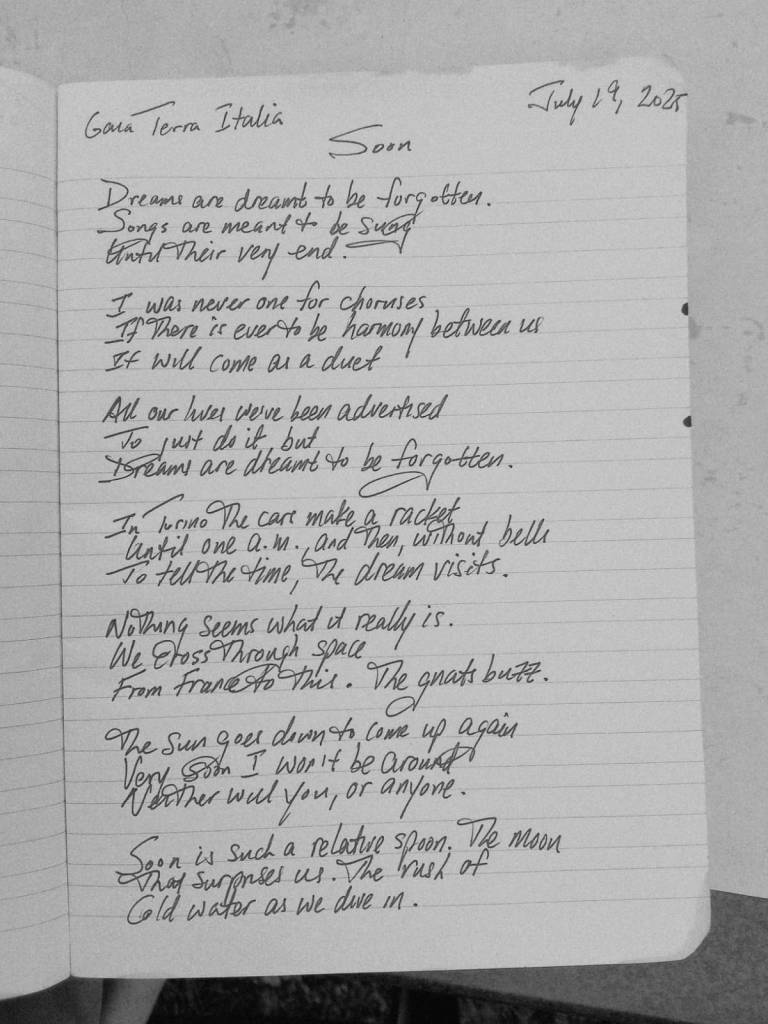 Gaia Terra Italia
July 19, 2025
Soon
Dreams are dreamt to be forgotten.
Songs are meant to be sung
Until their very end.
I was never one for choruses
If there is ever to be harmony between us
It will come as a duet
All our lives we've been advertised
To just do it, but
Dreams are dreamt to be forgotten.
In Turino the cars make a racket
Until one a.m., and then, without bells
To tell the time, the dream visits.
Nothing seems what it really is.
We cross through space
From France to this. The gnats buzz.
The sun goes down to come up again
Very soon I won't be around
Neither will you, or anyone.
Soon is such a relative spoon. The moon
That surprises us. The rush of
Cold water as we dive in.